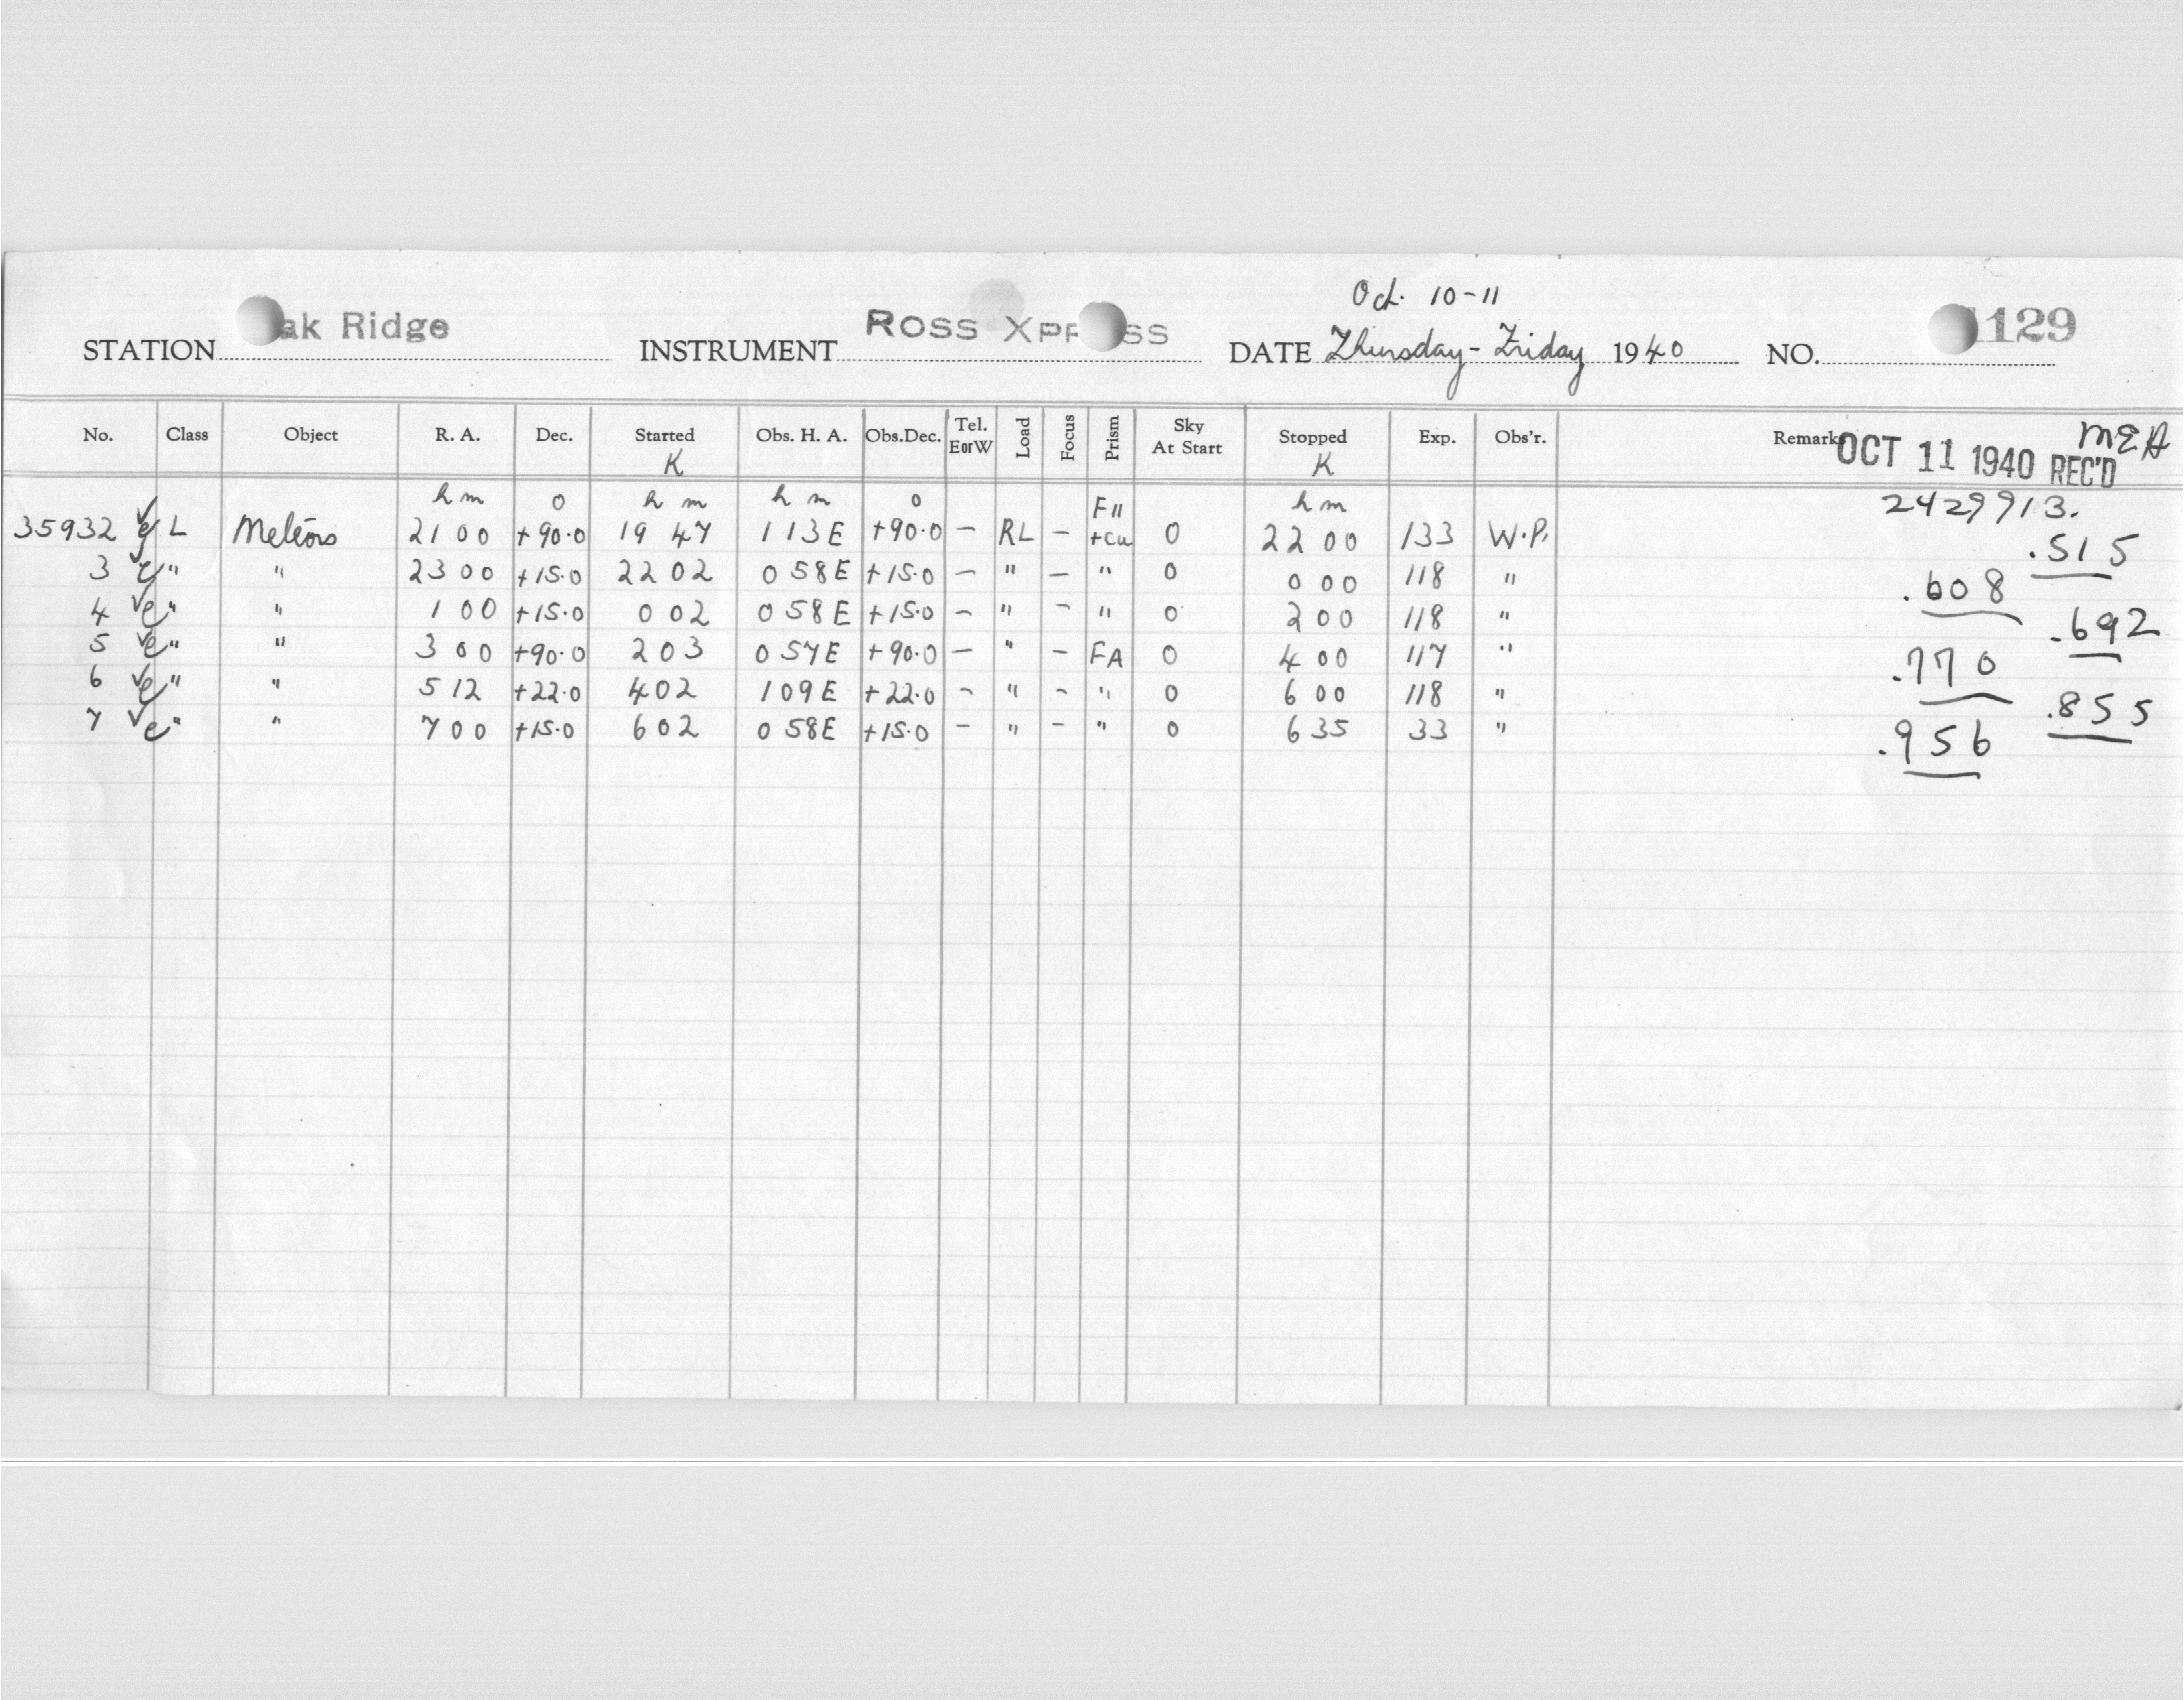 Oct. 10-11
STATION ak Ridge INSTRUMENT ROSS XPRESS DATE Thursday - Friday 1940 NO. 1129
No. Class Object R. A. Dec. Started Obs. H. A. Obs.Dec. Tel. E or W Load Focus Prism Sky At Start Stopped Exp. Obs'r. Remarks OCT 11 1940 REC'D MEA
K K
h m o h m h m o h m 2429913.
35932 e L Meteors 21 00 +90.0 19 47 1 13E +90.0 - RL - F11 +cu 0 22 00 133 W.P. .515
3 e " " 23 00 +15.0 22 02 0 58E +15.0 - " - " 0 0 00 118 " .608
4 e " " 1 00 +15.0 0 02 0 58E +15.0 - " - " 0 2 00 118 " .692
5 e " " 3 00 +90.0 2 03 0 57E +90.0 - " - FA 0 4 00 117 " .770
6 e " " 5 12 +22.0 4 02 1 09E +22.0 - " - " 0 6 00 118 " .855
7 e " " 7 00 +15.0 6 02 0 58E +15.0 - " - " 0 6 35 33 " .956